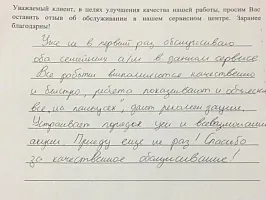 Уважаемый клиент, в целях улучшения качества нашей работы, просим Вас
оставить отзыв об обслуживании в нашем сервисном центре. Заранее
благодарны!
Уже не в первый раз обслуживаю
оба семейных а/м в данном сервисе
Все работы выполняются качественно
и быстро, ребята показывают и объясняют
все „на пальцах", дают рекомендации.
Устраивает порядок цен и всевозможные
акции. Приеду еще не раз! Спасибо
за качественное обслуживание!